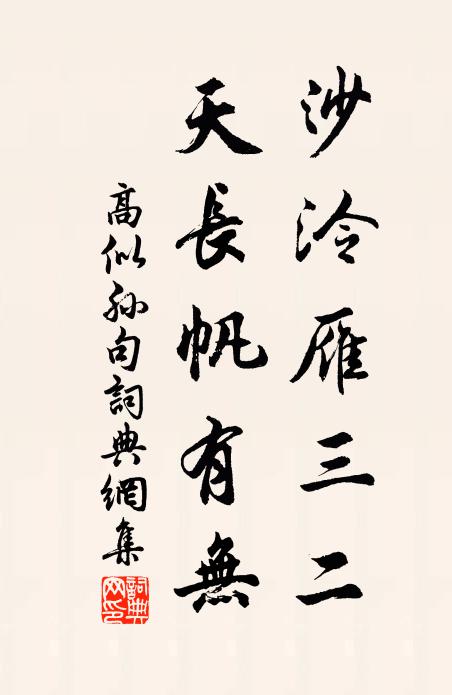 沙泠雁三二
天長帆有無
高似孫句詞典網集
詞典網印